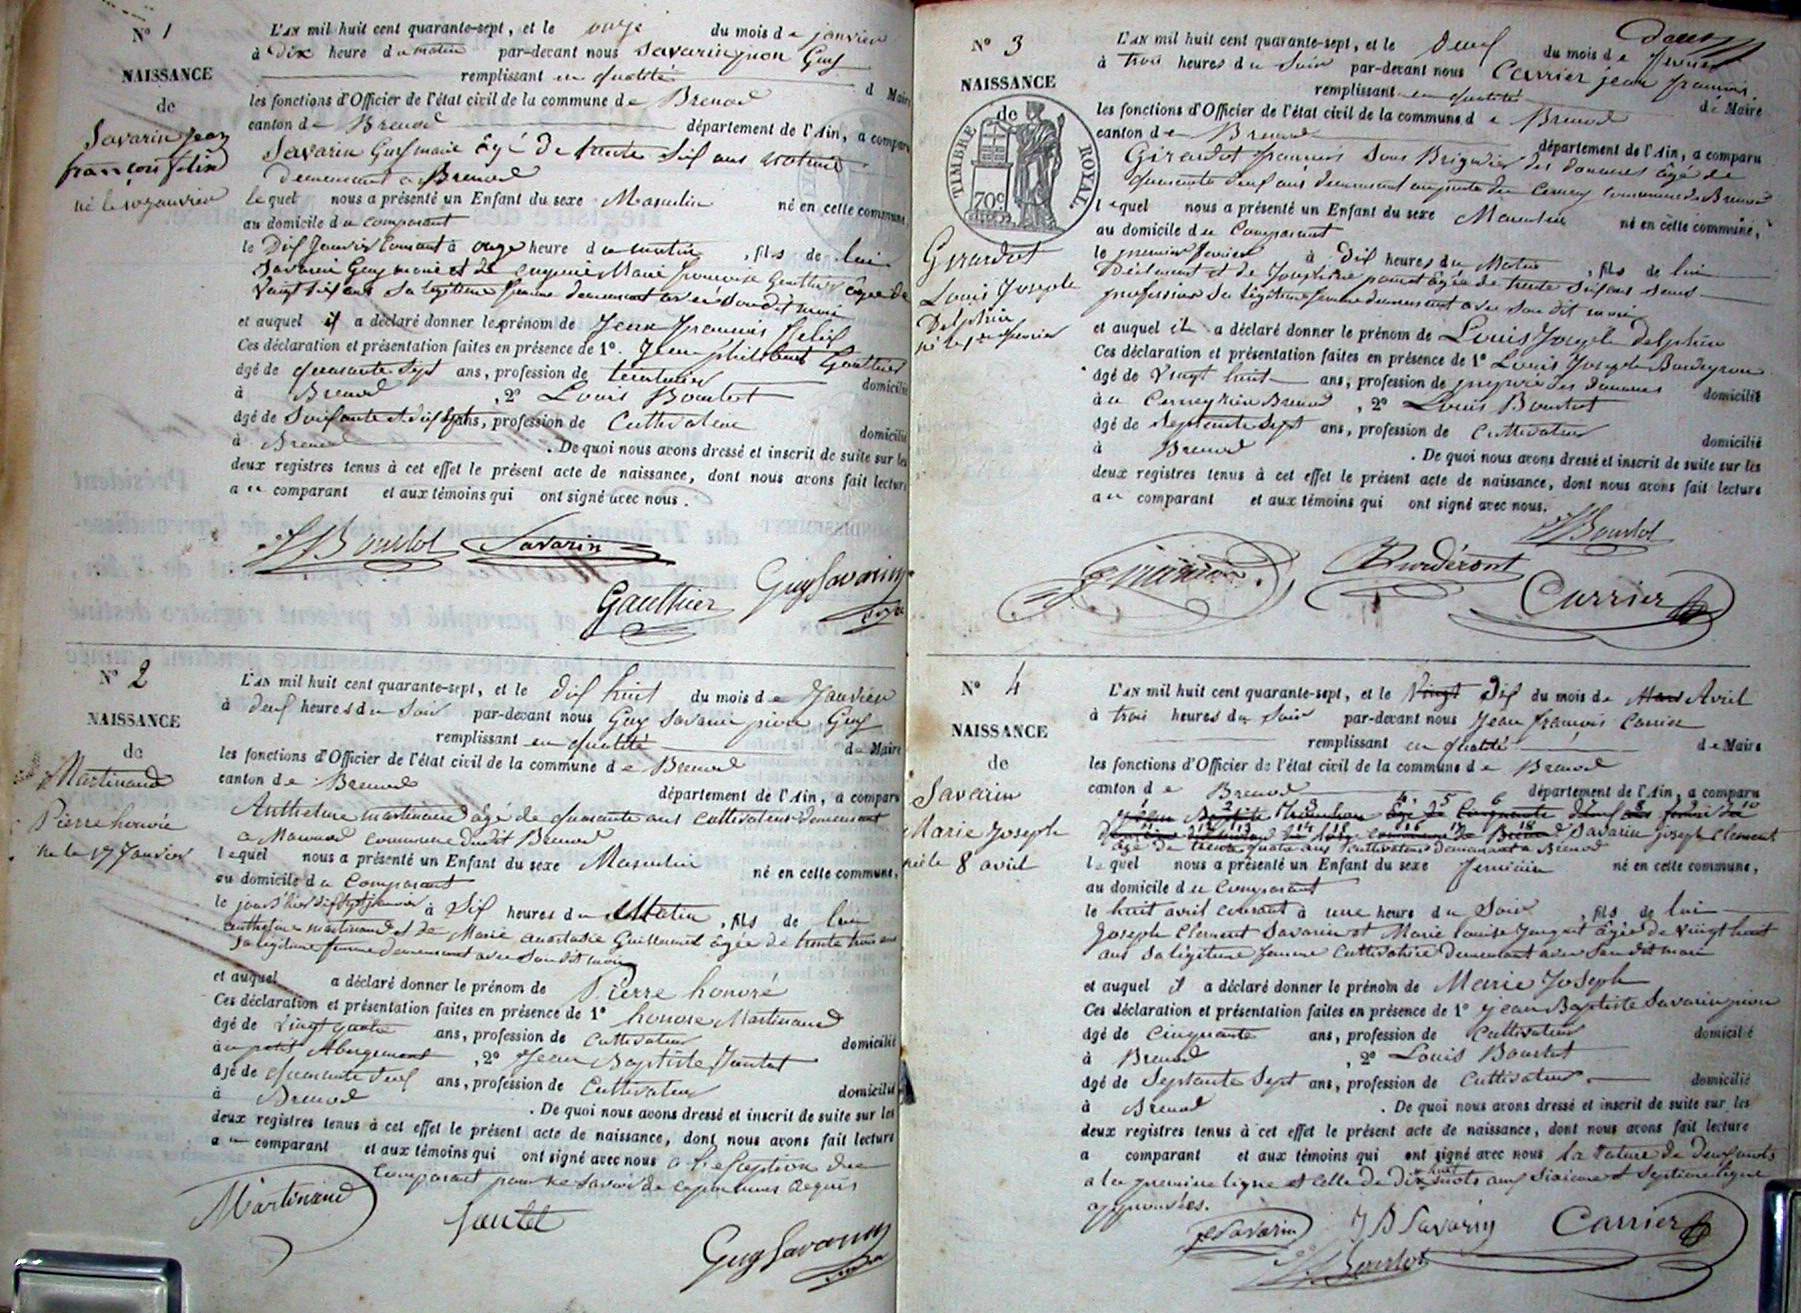 N° 1
NAISSANCE
de
Savarin Jean
françois félix
né le 10 janvier
L'AN mil huit cent quarante-sept, et le onze du mois de janvier
à dix heure du matin par-devant nous Savarin pion Guy
remplissant en qualité d Maire
les fonctions d'Officier de l'état civil de la commune de Brenod
canton de Brenod département de l'Ain, a comparu
Savarin Guy marie âgé de trente six ans
demeurant à Brenod
lequel nous a présenté un Enfant du sexe Masculin né en cette commune,
au domicile du comparant
le Dix Janvier Courant à onze heure du matin, fils de lui
Savarin Guy marie et de eugenie Marie françoise Gauthier âgée de
vingt six ans sa legitime femme demeurant avec son dit mari
et auquel il a déclaré donner le prénom de Jean François Félix
Ces déclaration et présentation faites en présence de 1°. Jean philibert Gauthier
âgé de quarante sept ans, profession de teinturier domicilié
à Brenod, 2° Louis Bourlot
âgé de Soixante et dix sept ans, profession de Cultivateur domicilié
à Brenod. De quoi nous avons dressé et inscrit de suite sur les
deux registres tenus à cet effet le présent acte de naissance, dont nous avons fait lecture
au comparant et aux témoins qui ont signé avec nous.
L Bourlot Savarin
Gauthier Guy Savarin
N° 2
NAISSANCE
de
Martinand
Pierre honoré
né le 17 Janvier
L'AN mil huit cent quarante-sept, et le dix huit du mois de Janvier
à deux heures du Soir par-devant nous Guy Savarin pion Guy
remplissant en qualité de Maire
les fonctions d'Officier de l'état civil de la commune de Brenod
canton de Brenod département de l'Ain, a comparu
Anthelme martinand âgé de quarante ans Cultivateur demeurant
à commune dudit Brenod
lequel nous a présenté un Enfant du sexe Masculin né en cette commune,
au domicile du Comparant
le jour d'hier dix sept janvier à Dix heures du Matin, fils de lui
anthelme martinand et de Marie anastasie Guillermet âgée de trente trois ans
sa legitime femme demeurant avec son dit mari
et auquel a déclaré donner le prénom de Pierre honoré
Ces déclaration et présentation faites en présence de 1° honoré Martinand
âgé de vingt quatre ans, profession de Cultivateur domicilié
au petit Abergement, 2° Jean Baptiste Jantet
âgé de quarante deux ans, profession de Cultivateur domicilié
à Brenod. De quoi nous avons dressé et inscrit de suite sur les
deux registres tenus à cet effet le présent acte de naissance, dont nous avons fait lecture
au comparant et aux témoins qui ont signé avec nous à l'exception du
Comparant pour ne savoir de ce par nous requis
Martinand Jantet
Guy Savarin
N° 3
NAISSANCE
de
TIMBRE ROYAL
70c
Girardot
Louis Joseph
Delphin
né le 1er février
L'AN mil huit cent quarante-sept, et le deux du mois de février
à trois heures du Soir par-devant nous Carrier jean françois
remplissant en qualité de Maire
les fonctions d'Officier de l'état civil de la commune de Brenod
canton de Brenod département de l'Ain, a comparu
Girardot françois Sous Brigadier des douanes âgé de
quarante deux ans demeurant au poste du Cerney commune de Brenod
lequel nous a présenté un Enfant du sexe Masculin né en cette commune,
au domicile du Comparant
le premier février à Dix heures du Matin, fils de lui
Déclarant et de Joséphine âgée de trente six ans sans
profession Sa légitime femme demeurant avec Son dit mari
et auquel il a déclaré donner le prénom de Louis Joseph Delphin
Ces déclaration et présentation faites en présence de 1° Louis Joseph
âgé de Vingt huit ans, profession de préposé des douanes domicilié
au Cerney Brenod, 2° Louis Bourlot
âgé de Septante Sept ans, profession de Cultivateur domicilié
à Brenod. De quoi nous avons dressé et inscrit de suite sur les
deux registres tenus à cet effet le présent acte de naissance, dont nous avons fait lecture
au comparant et aux témoins qui ont signé avec nous.
L Bourlot
Carrier
N° 4
NAISSANCE
de
Savarin
Marie Joseph
née le 8 avril
L'AN mil huit cent quarante-sept, et le Vingt Dix du mois de Mars Avril
à trois heures du Soir par-devant nous Jean françois Carrier
remplissant en qualité de Maire
les fonctions d'Officier de l'état civil de la commune de Brenod
canton de Brenod département de l'Ain, a comparu
Savarin Joseph Clement
âgé de trente quatre ans Cultivateur demeurant à Brenod
lequel nous a présenté un Enfant du sexe féminin né en cette commune,
au domicile du comparant
le huit avril courant à une heure du Soir, fils de lui
Joseph Clement Savarin et Marie Louise âgée de Vingt huit
ans Sa légitime femme Cultivatrice demeurant avec Son dit mari
et auquel il a déclaré donner le prénom de Marie Joseph
Ces déclaration et présentation faites en présence de 1° jean Baptiste Savarin pion
âgé de Cinquante ans, profession de Cultivateur domicilié
à Brenod, 2° Louis Bourlot
âgé de Septante Sept ans, profession de Cultivateur domicilié
à Brenod. De quoi nous avons dressé et inscrit de suite sur les
deux registres tenus à cet effet le présent acte de naissance, dont nous avons fait lecture
a comparant et aux témoins qui ont signé avec nous la rature de deux mots
a la première ligne et celle de dix huit mots aux Sixieme et Septieme ligne
approuvées.
JC Savarin J B Savarin Carrier
L Bourlot